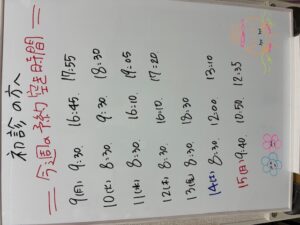 初診の方へ
今週の予約空き時間
9(月) 9:30. 16:45. 17:55
10(火) 8:30 9:30. 18:30
11(水) 8:30 16:10. 19:05
12(木) 8:30. 16:10. 17:20
13(金) 8:30 18:30
14(土) 8:30 12:00 13:10
15(日) 9:40. 10:50. 12:35